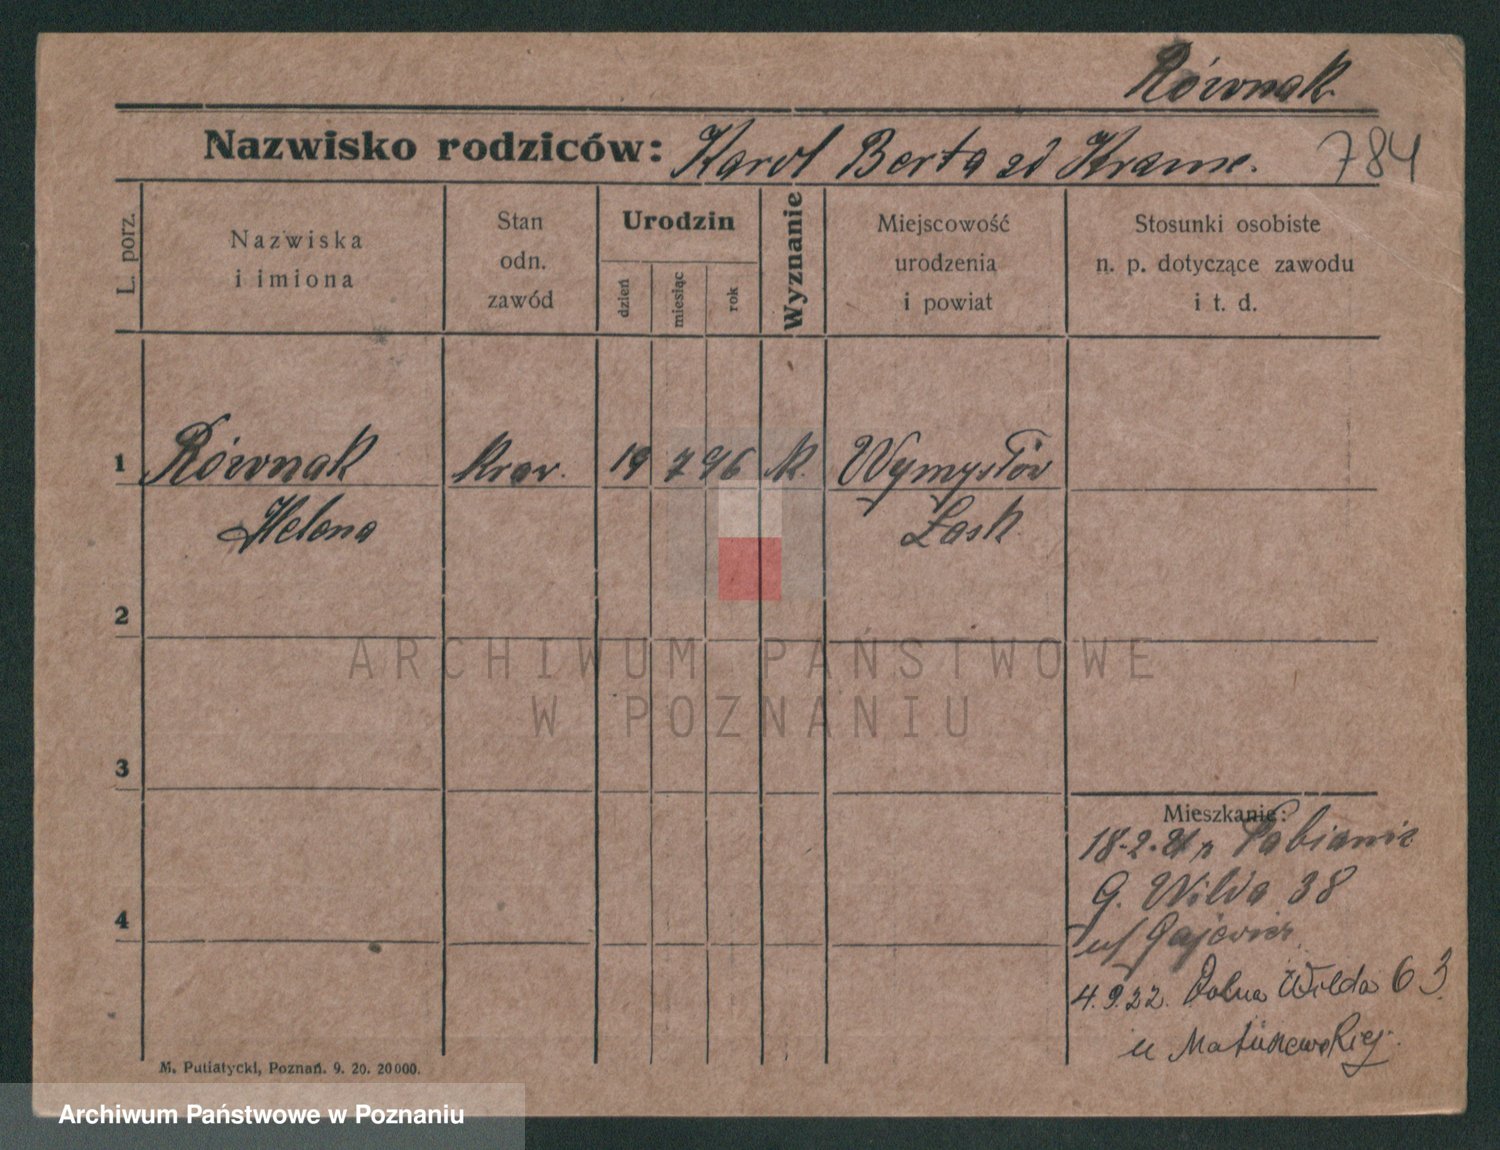 Równak
Nazwisko rodziców: Karol Berta zd Krame. 784
L. porz.
Nazwiska
i imiona
Stan
odn.
zawód
Urodzin
dzień
miesiąc
rok
Wyznanie
Miejscowość
urodzenia
i powiat
Stosunki osobiste
n. p. dotyczące zawodu
i t. d.
1 Równak kraw. 19 7 96 k. Wymysłów
Helena Łask
2
ARCHIWUM PAŃSTWOWE
W POZNANIU
3
Mieszkanie:
18-2-21 z Pabianic
G. Wilda 38
4
u/ Gajewicz
4.9.22. Dolna Wilda 63.
u Matuszewskiej.
M. Putiatycki, Poznań. 9. 20. 20000.
Archiwum Państwowe w Poznaniu